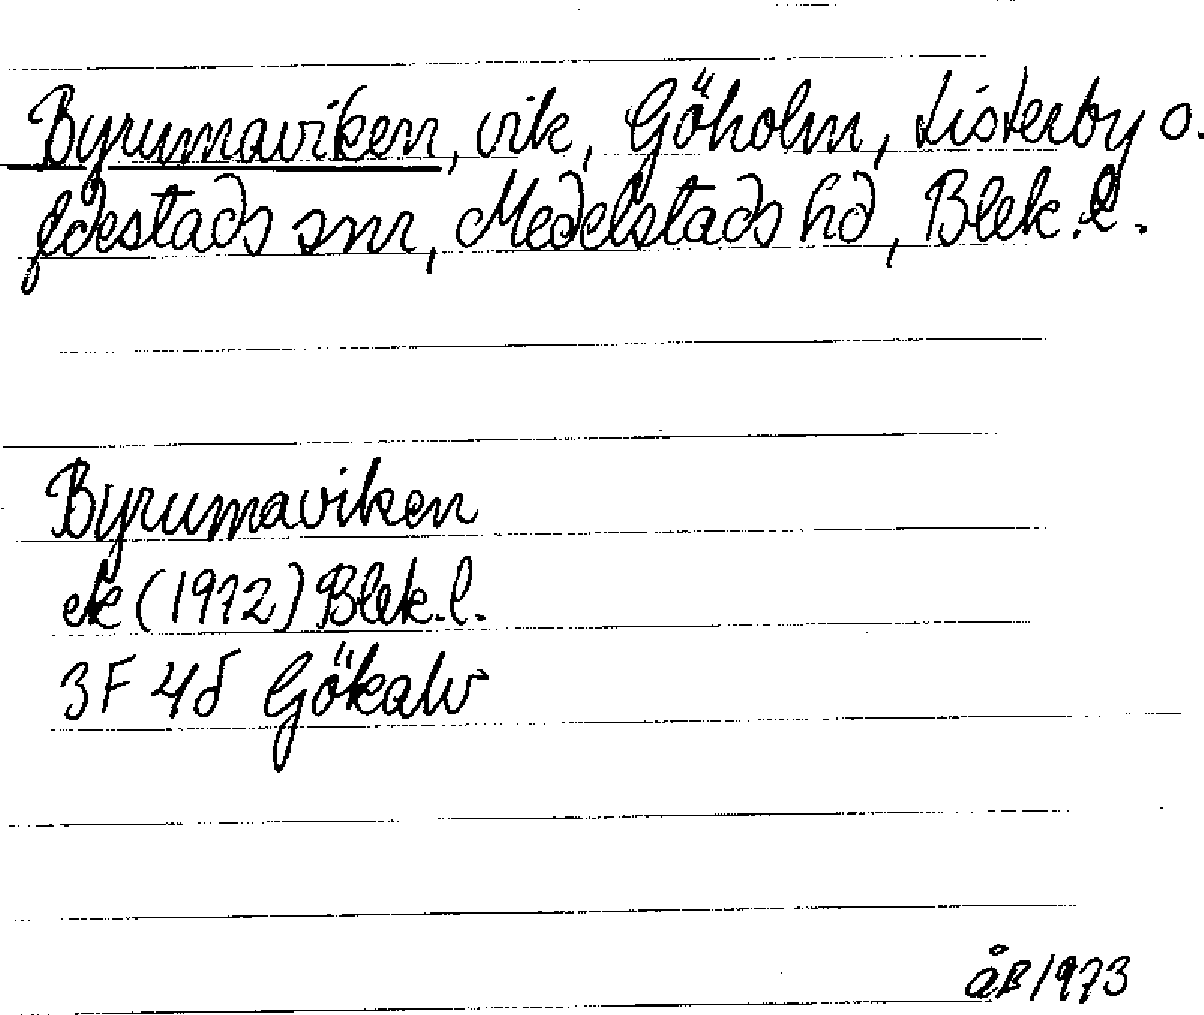 Byrumaviken, vik, Göholm, Listerby o.
Edestads snr, Medelstads hd, Blek. l.
Byrumaviken
ek (1972) Blek. l.
3F 4d Gökalv
åB/1973